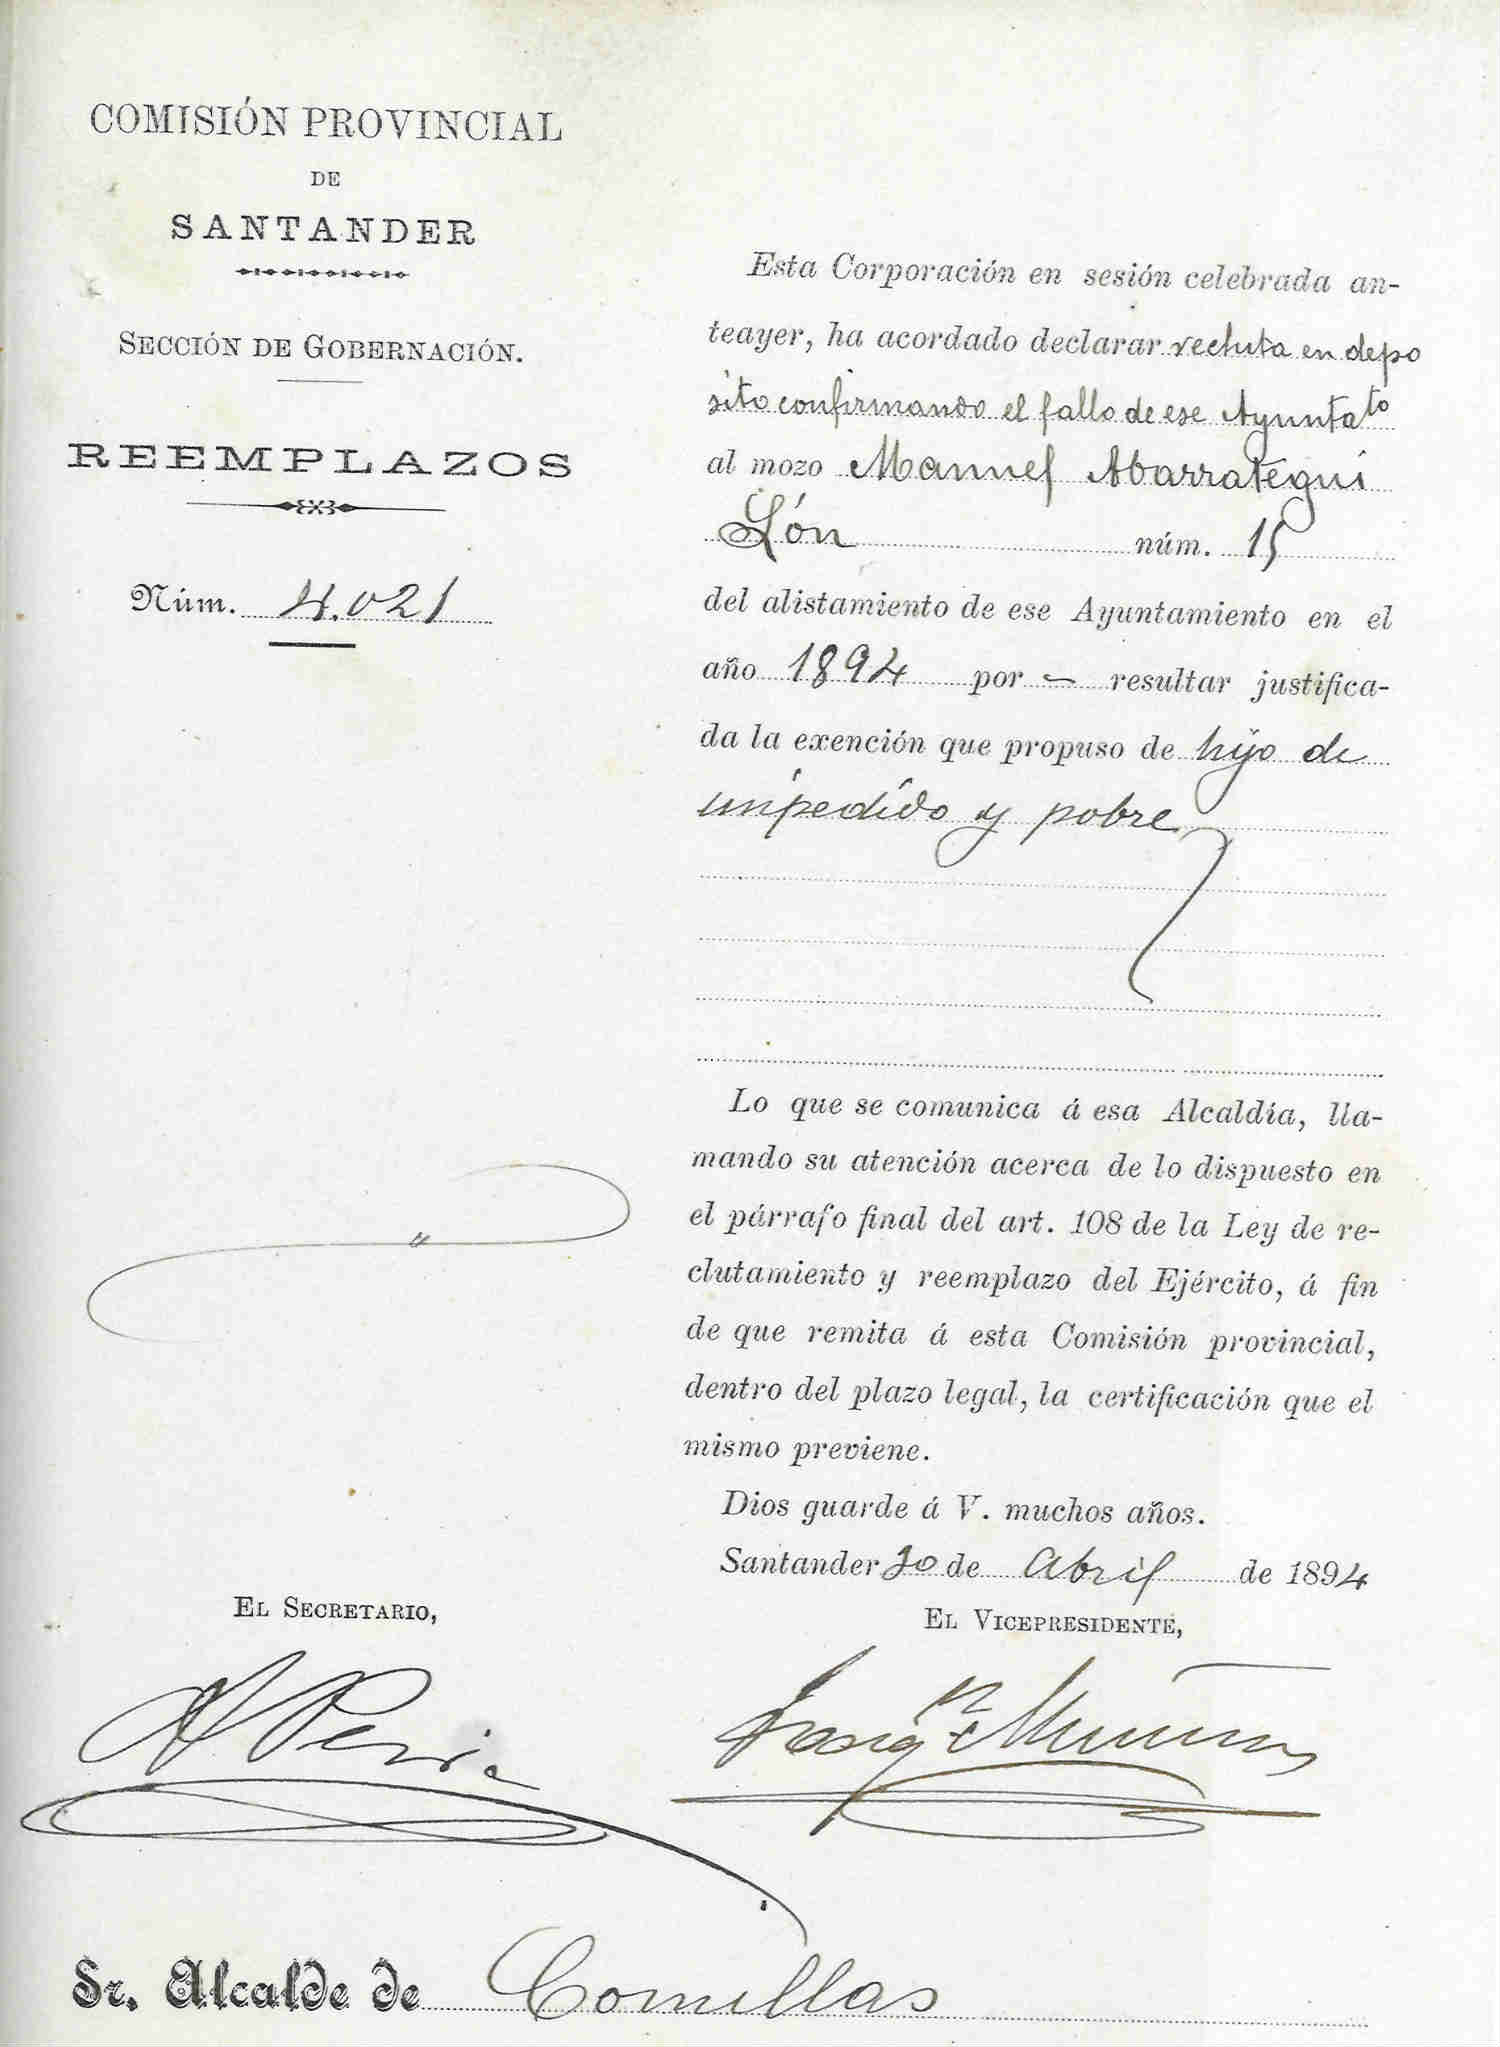 COMISIÓN PROVINCIAL
DE
SANTANDER
SECCIÓN DE GOBERNACIÓN.
REEMPLAZOS
Núm. 4.021
Esta Corporación en sesión celebrada an-
teayer, ha acordado declarar recluta en depo
sito confirmando el fallo de ese Ayuntato
al mozo Manuel Abarrategui
Lón núm. 15
del alistamiento de ese Ayuntamiento en el
año 1894 por — resultar justifica-
da la exención que propuso de hijo de
impedido y pobre
Lo que se comunica á esa Alcaldía, lla-
mando su atención acerca de lo dispuesto en
el párrafo final del art. 108 de la Ley de re-
clutamiento y reemplazo del Ejército, á fin
de que remita á esta Comisión provincial,
dentro del plazo legal, la certificación que el
mismo previene.
Dios guarde á V. muchos años.
Santander de Abril de 1894
EL SECRETARIO,
EL VICEPRESIDENTE,
Sr. Alcalde de Comillas